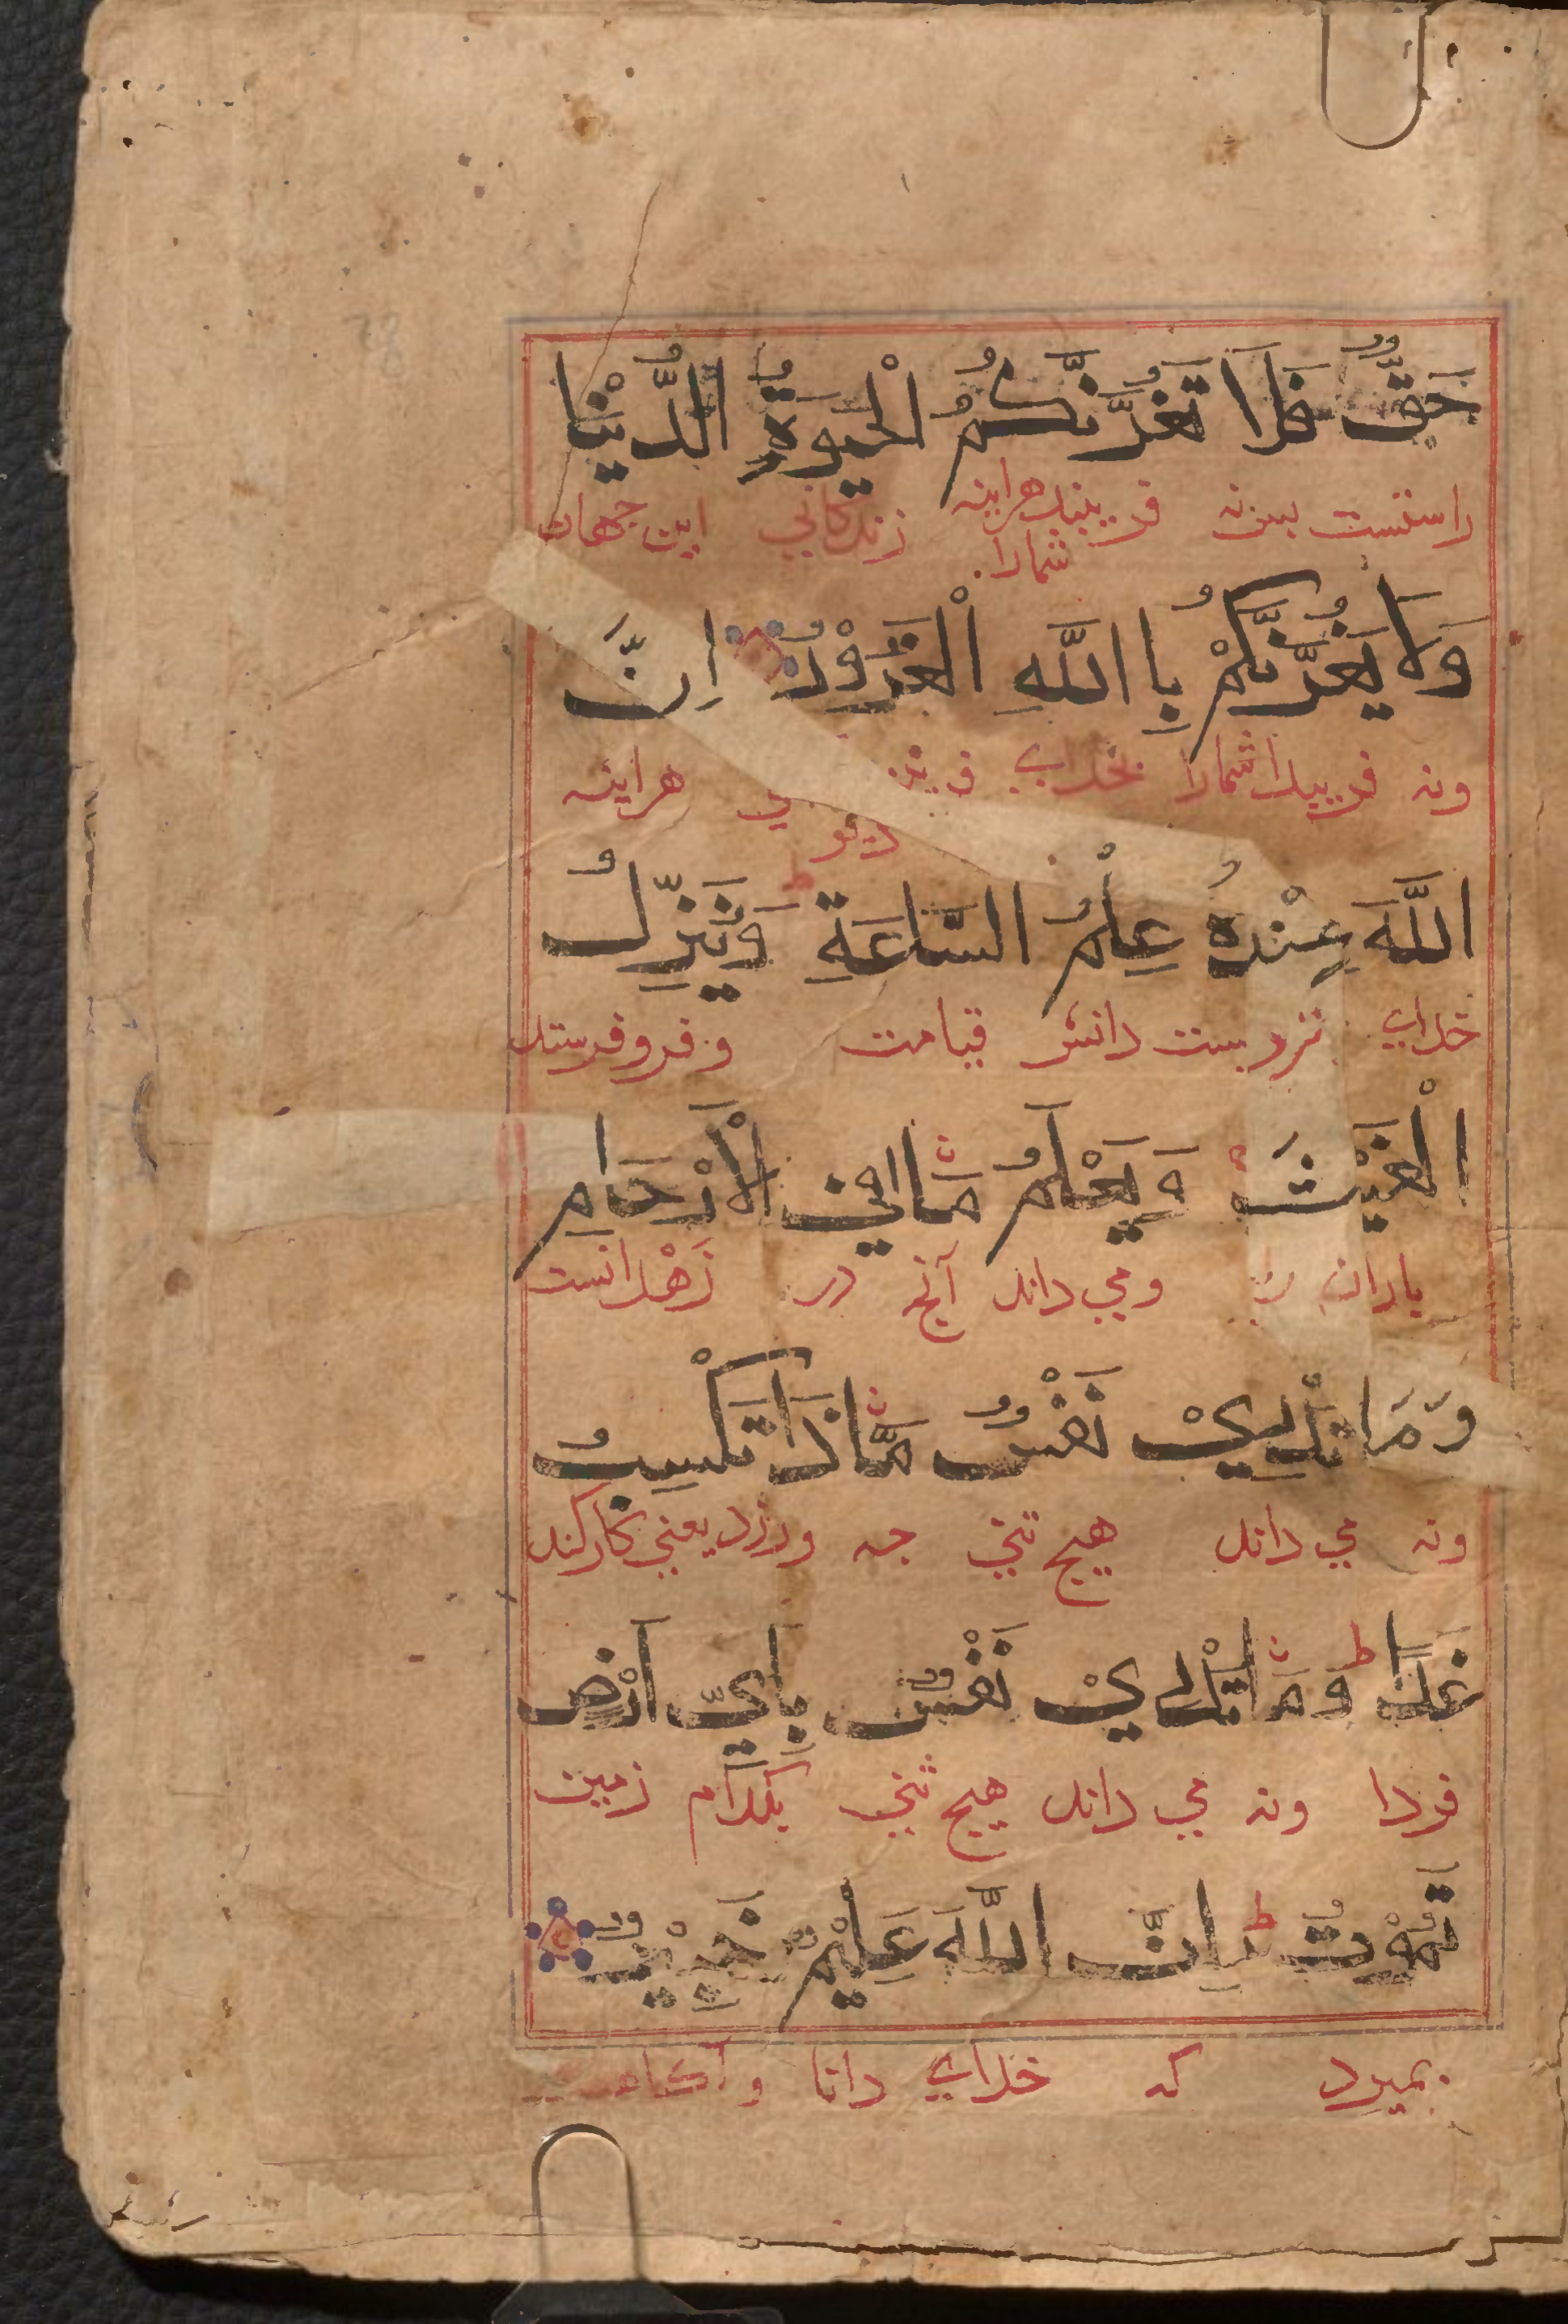 حَقٌّ فَلَا تَغُرَّنَّكُمُ الْحَيٰوةُ الدُّنْيَا
راستست پس نه فریبند هراینه شمارا زندکانی این جهان
وَلَا يَغُرَّنَّكُمْ بِااللَّهِ الْغَرُوْرُ اِنَّ
ونه فریبدا شمارا بخدای دیو هراینه
اللَّهَ عِنْدَهُ عِلْمُ السَّاعَةِ وَيُنَزِّلُ
خدای نزدیست دانش قیامت و فروفرستد
الْغَيْثَ وَيَعْلَمُ مَا فِي الْاَرْحَامِ
باران را ومی داند آنچه در زهدانست
وَمَا تَدْرِيْ نَفْسٌ مَّاذَا تَكْسِبُ
ونه می داند هیچ تنی چه ورزد یعنی کارکند
غَدًا ط وَمَا تَدْرِيْ نَفْسٌ بِاَيِّ اَرْضٍ
فردا ونه می داند هیچ تنی بکدام زمین
تَمُوْتُ ط اِنَّ اللَّهَ عَلِيْمٌ خَبِيْرٌ
بمیرد که خدای دانا و